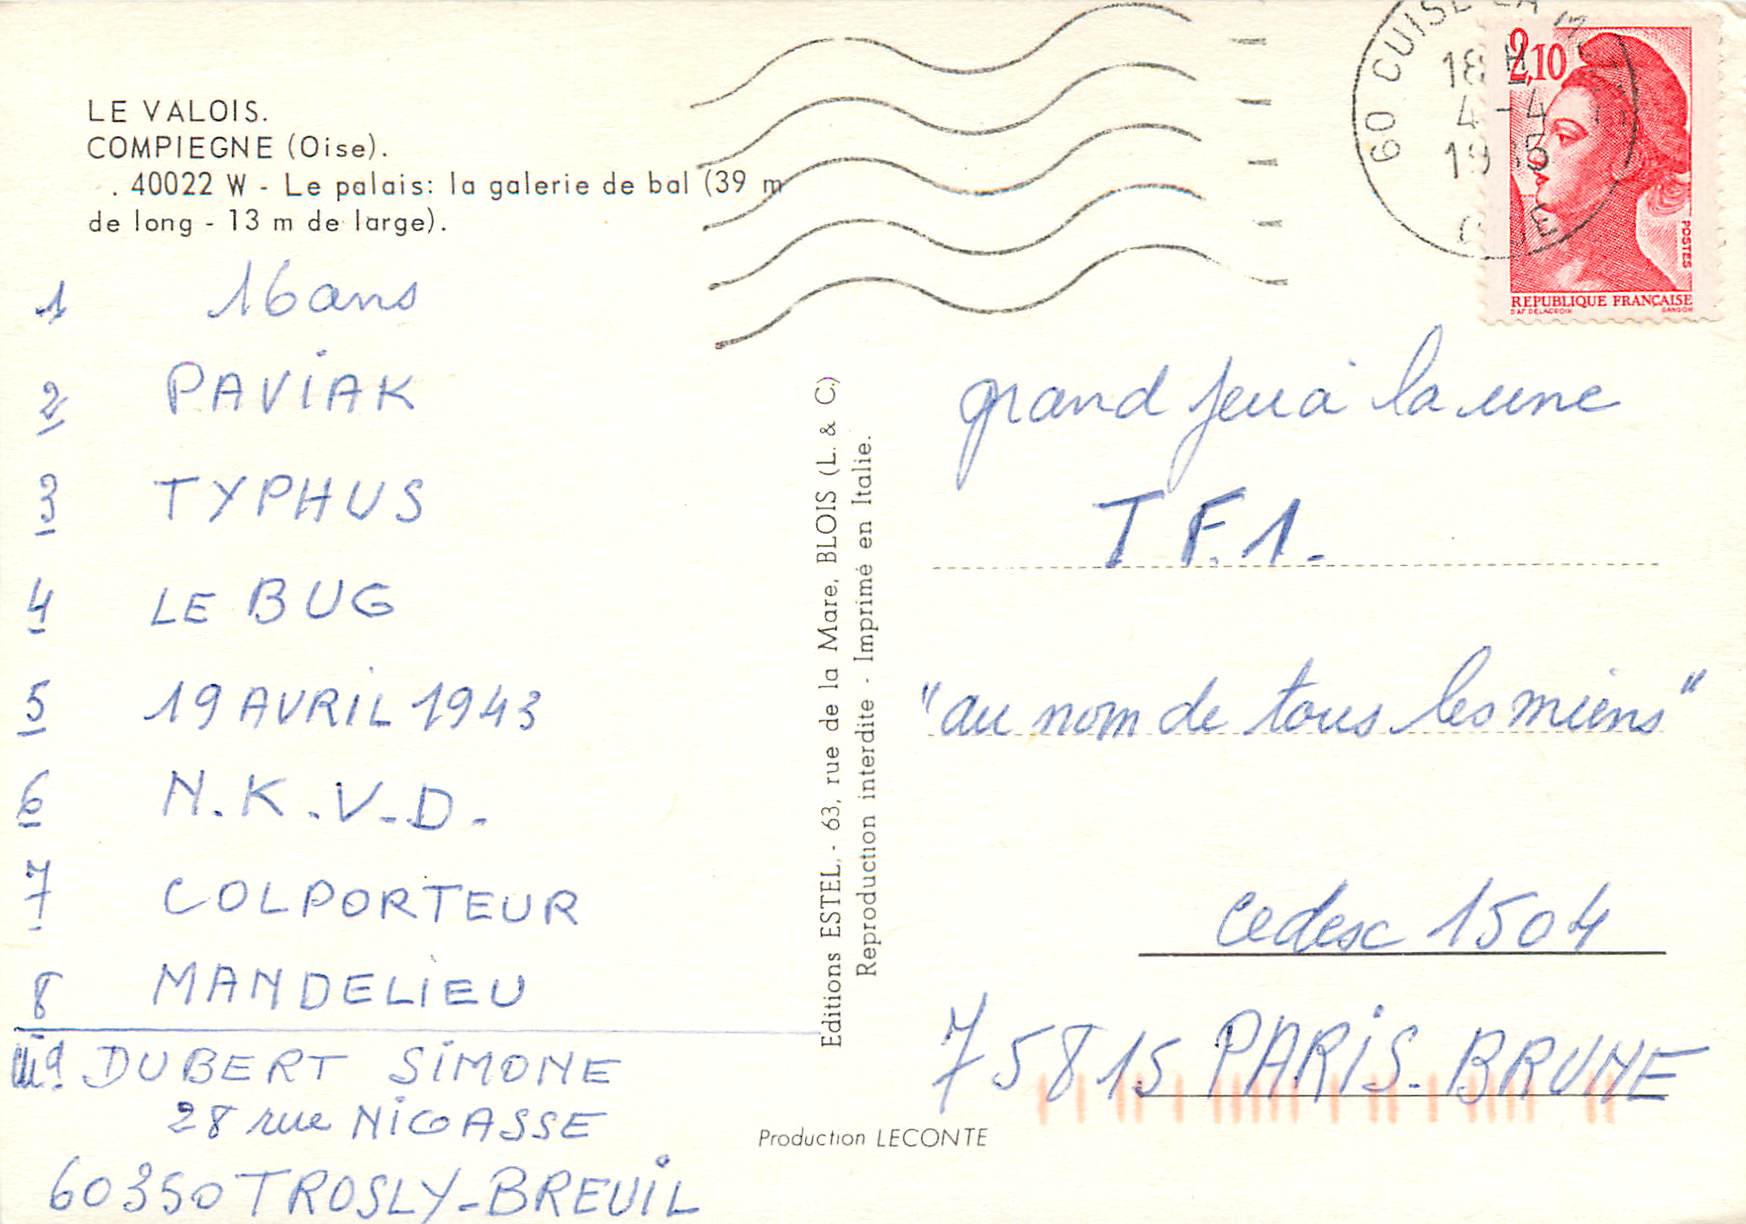 LE VALOIS.
COMPIEGNE (Oise).
. 40022 W - Le palais: la galerie de bal (39 m
de long - 13 m de large).
1 16 ans
2 PAVIAK
3 TYPHUS
4 LE BUG
5 19 AVRIL 1943
6 N.K.V.D.
7 COLPORTEUR
8 MANDELIEU
DUBERT SIMONE
28 rue NICOASSE
60350 TROSLY-BREUIL
Editions ESTEL, - 63, rue de la Mare, BLOIS (L. & C.)
Reproduction interdite - Imprimé en Italie.
Production LECONTE
60 CUISE LA
18 H
4 - 4
19
2,10
POSTES
REPUBLIQUE FRANÇAISE
D'AP. DELACROIX GANDON
grand jeu à la une
T F.1.
"au nom de tous les miens"
cedesc 1504
75815 PARIS-BRUNE